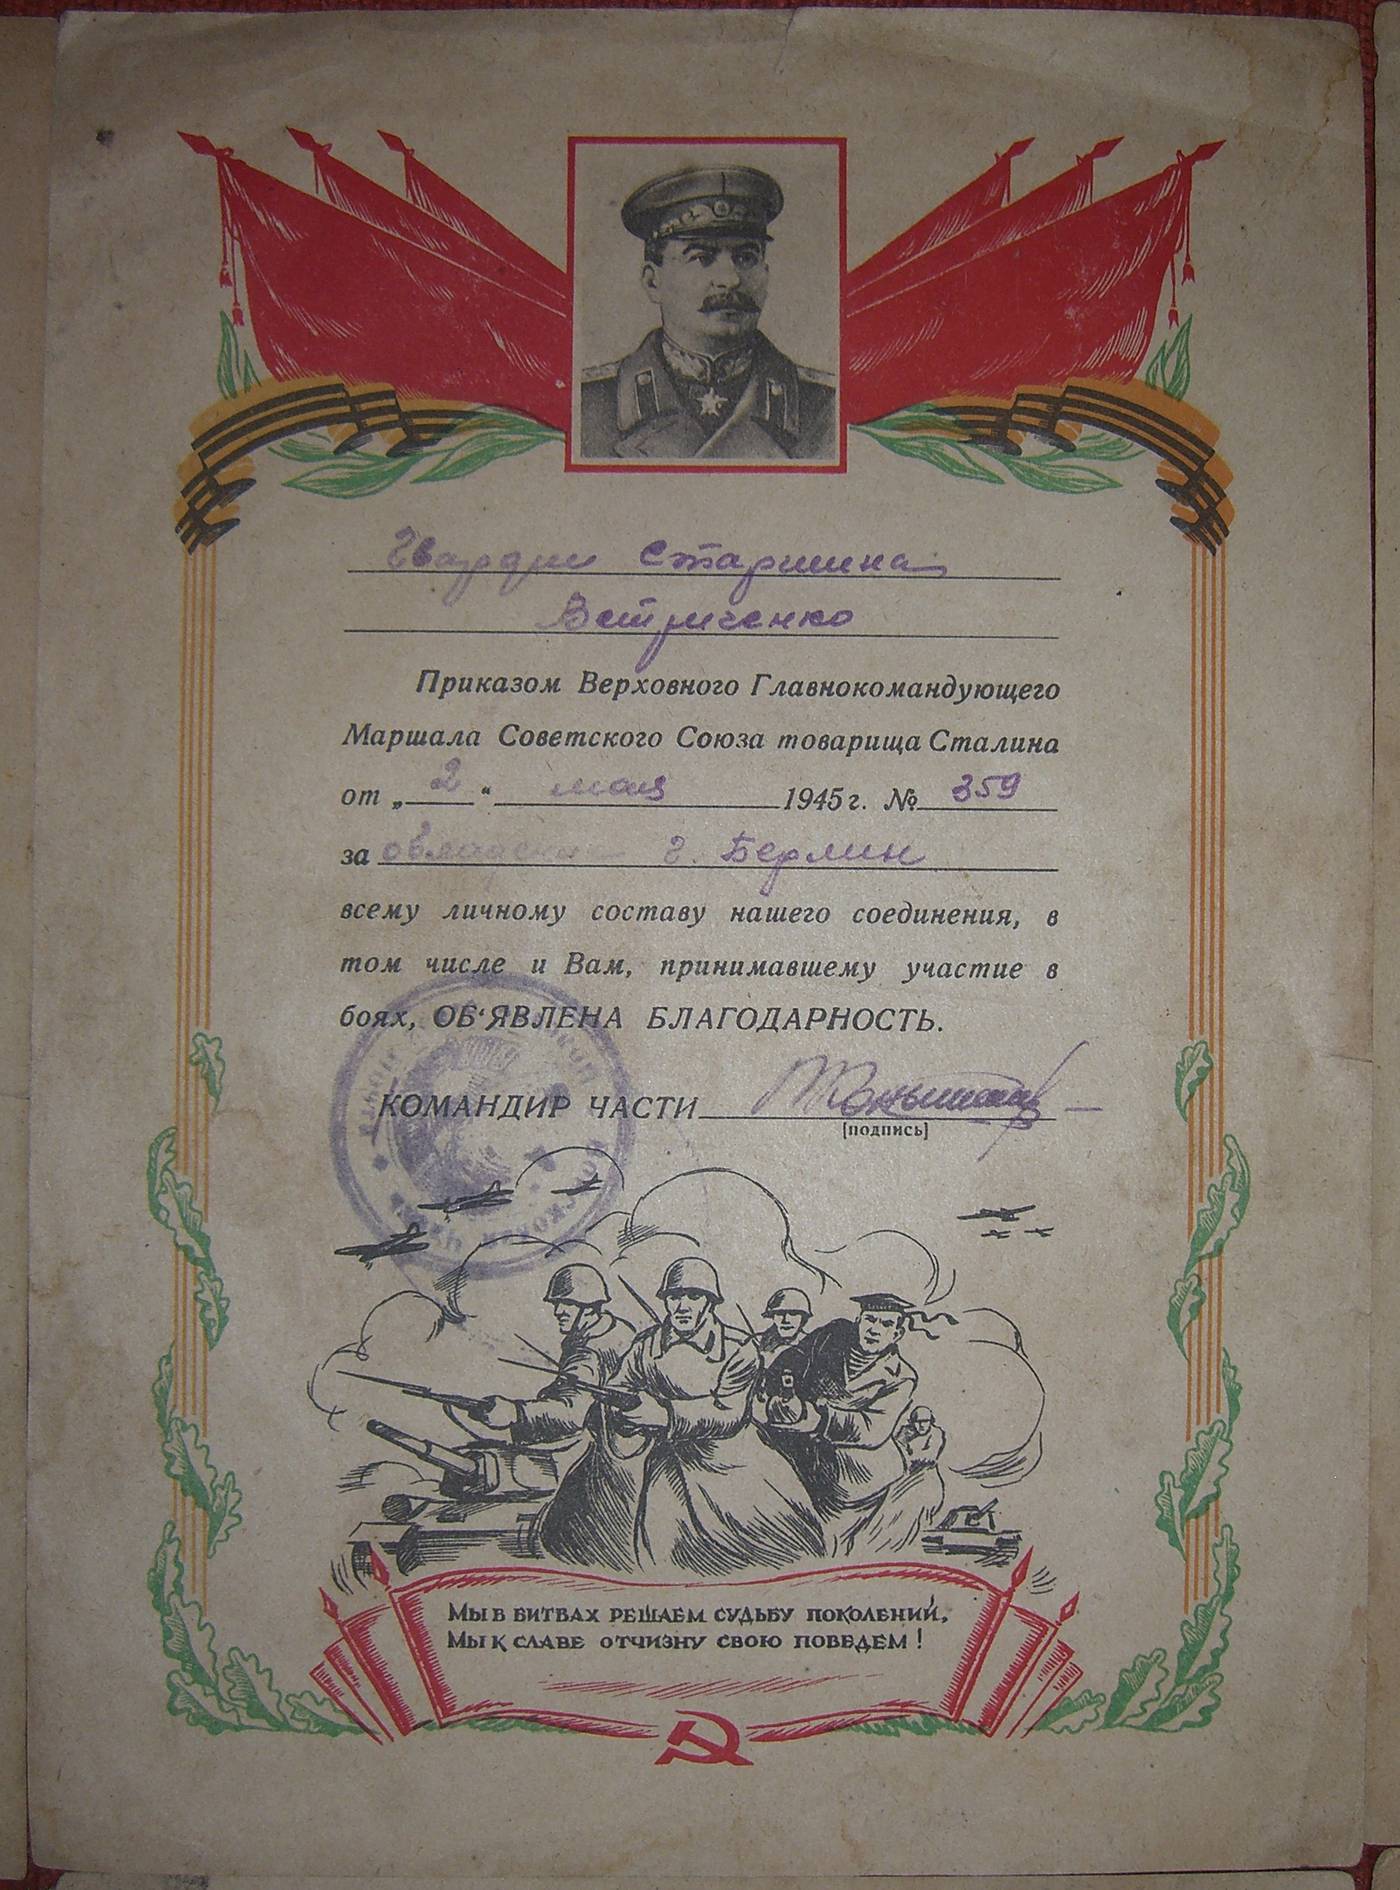 Гвардии старшина
Приказом Верховного Главнокомандующего
Маршала Советского Союза товарища Сталина
от „ 2 “ мая 1945 г. № 359
за овладение г. Берлин
всему личному составу нашего соединения, в
том числе и Вам, принимавшему участие в
боях, ОБ‘ЯВЛЕНА БЛАГОДАРНОСТЬ.
КОМАНДИР ЧАСТИ
[подпись]
Мы в битвах решаем судьбу поколений,
Мы к славе отчизну свою поведем!